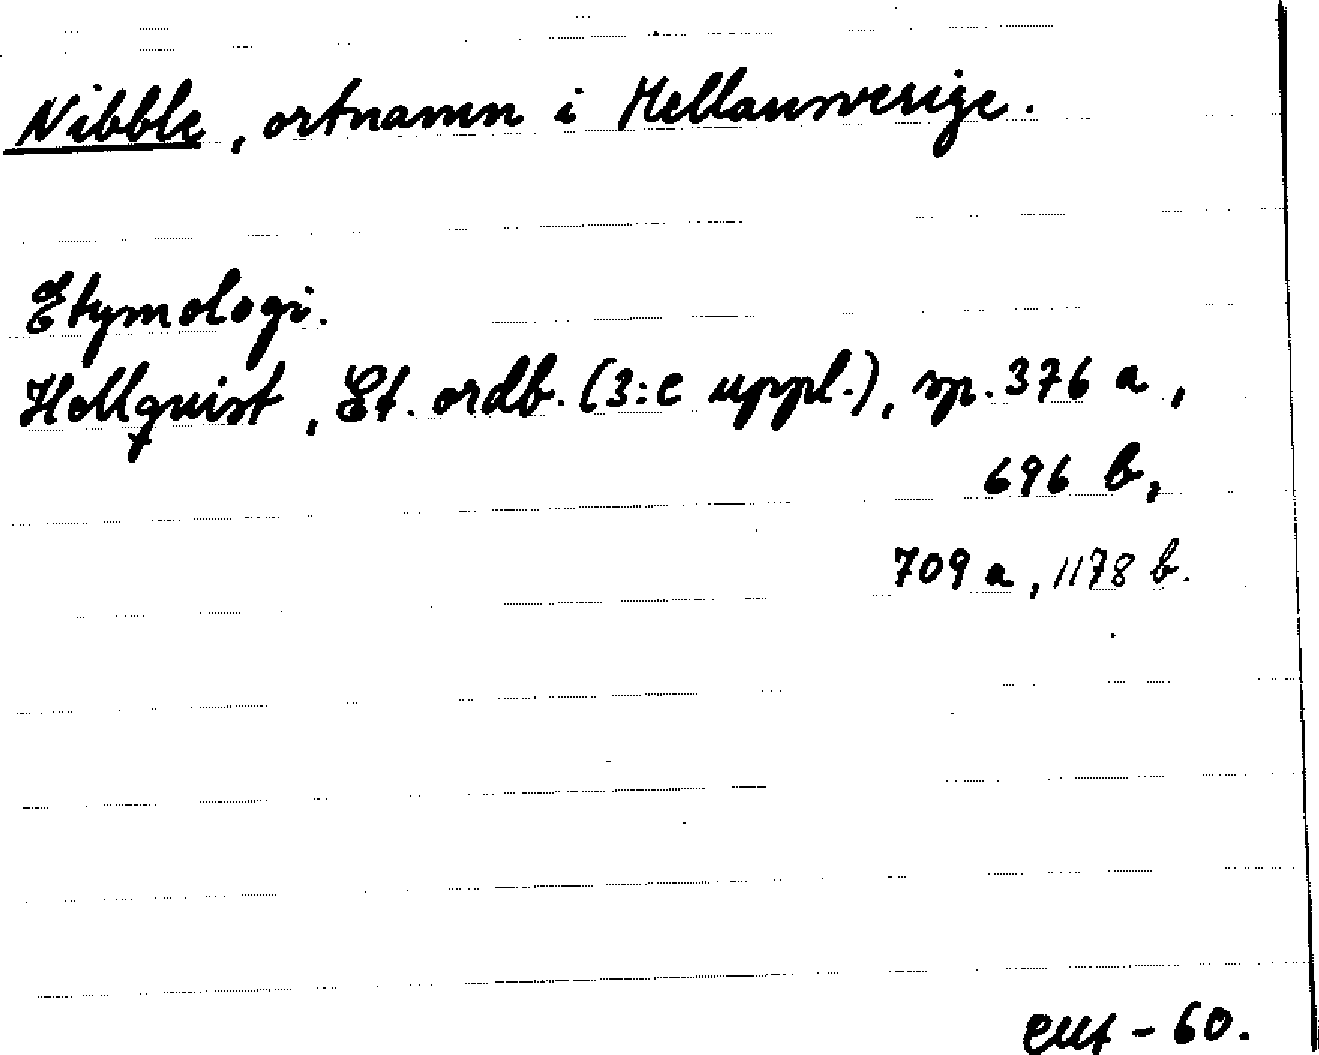 Nibble, ortnamn i Mellansverige.
Etymologi.
Hellquist, Et. ordb. (3:e uppl.), sp. 376 a,
696 b,
709 a, 1178 b.
- 60.